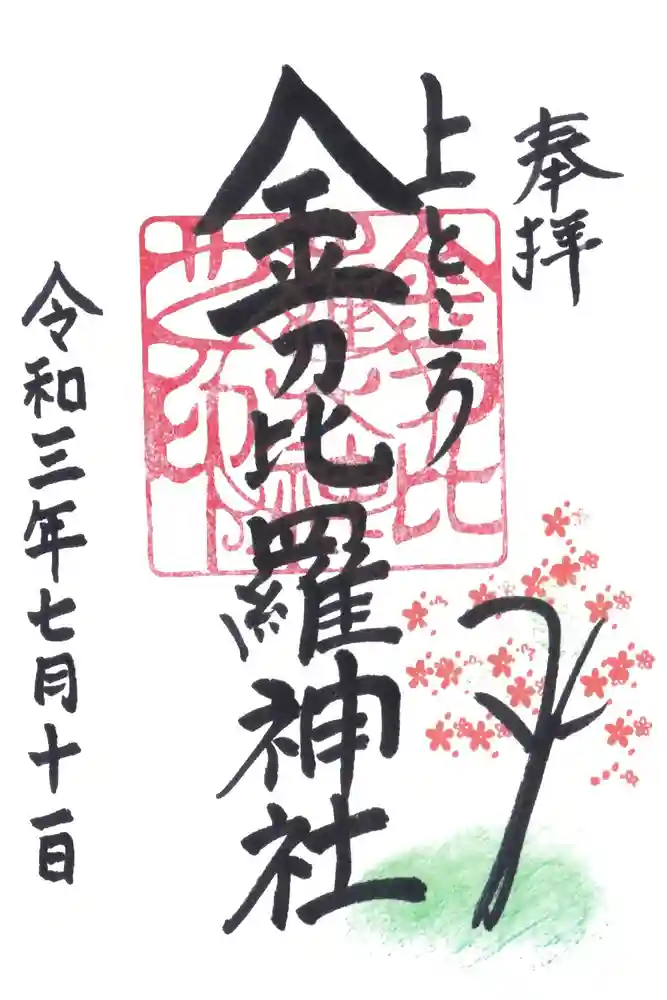 奉拝
上ところ
金刀比羅神社
令和三年七月十一日